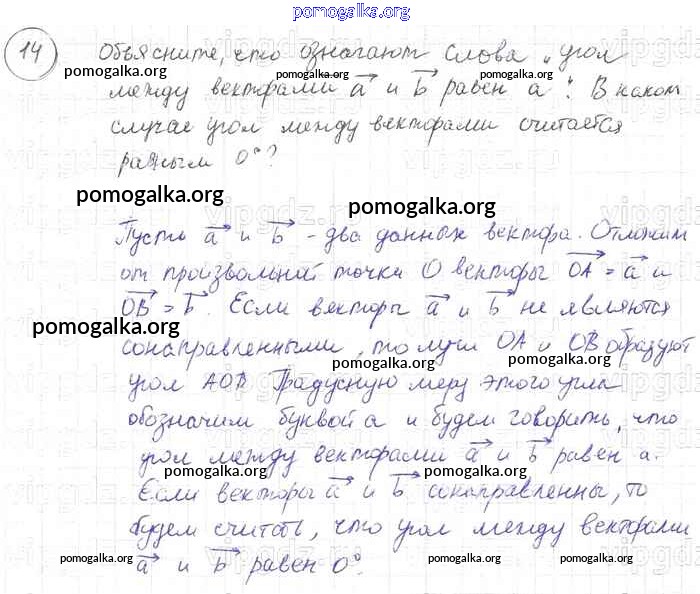 pomogalka.org
14 Объясните, что означают слова „угол
pomogalka.org pomogalka.org pomogalka.org
между векторами a и b равен a". В каком
случае угол между векторами считается
равным 0°?
pomogalka.org pomogalka.org
Пусть a и b - два данных вектора. Отложим
от произвольной точки О векторы OA = a и
OB = b. Если векторы a и b не являются
pomogalka.org
сонаправленными, то лучи OA и OB образуют
pomogalka.org pomogalka.org
угол AOB. Градусную меру этого угла
обозначим буквой a и будем говорить, что
угол между векторами a и b равен a.
pomogalka.org pomogalka.org
Если векторы a и b сонаправленны, то
будем считать, что угол между векторами
pomogalka.org pomogalka.org pomogalka.org
a и b равен 0°.